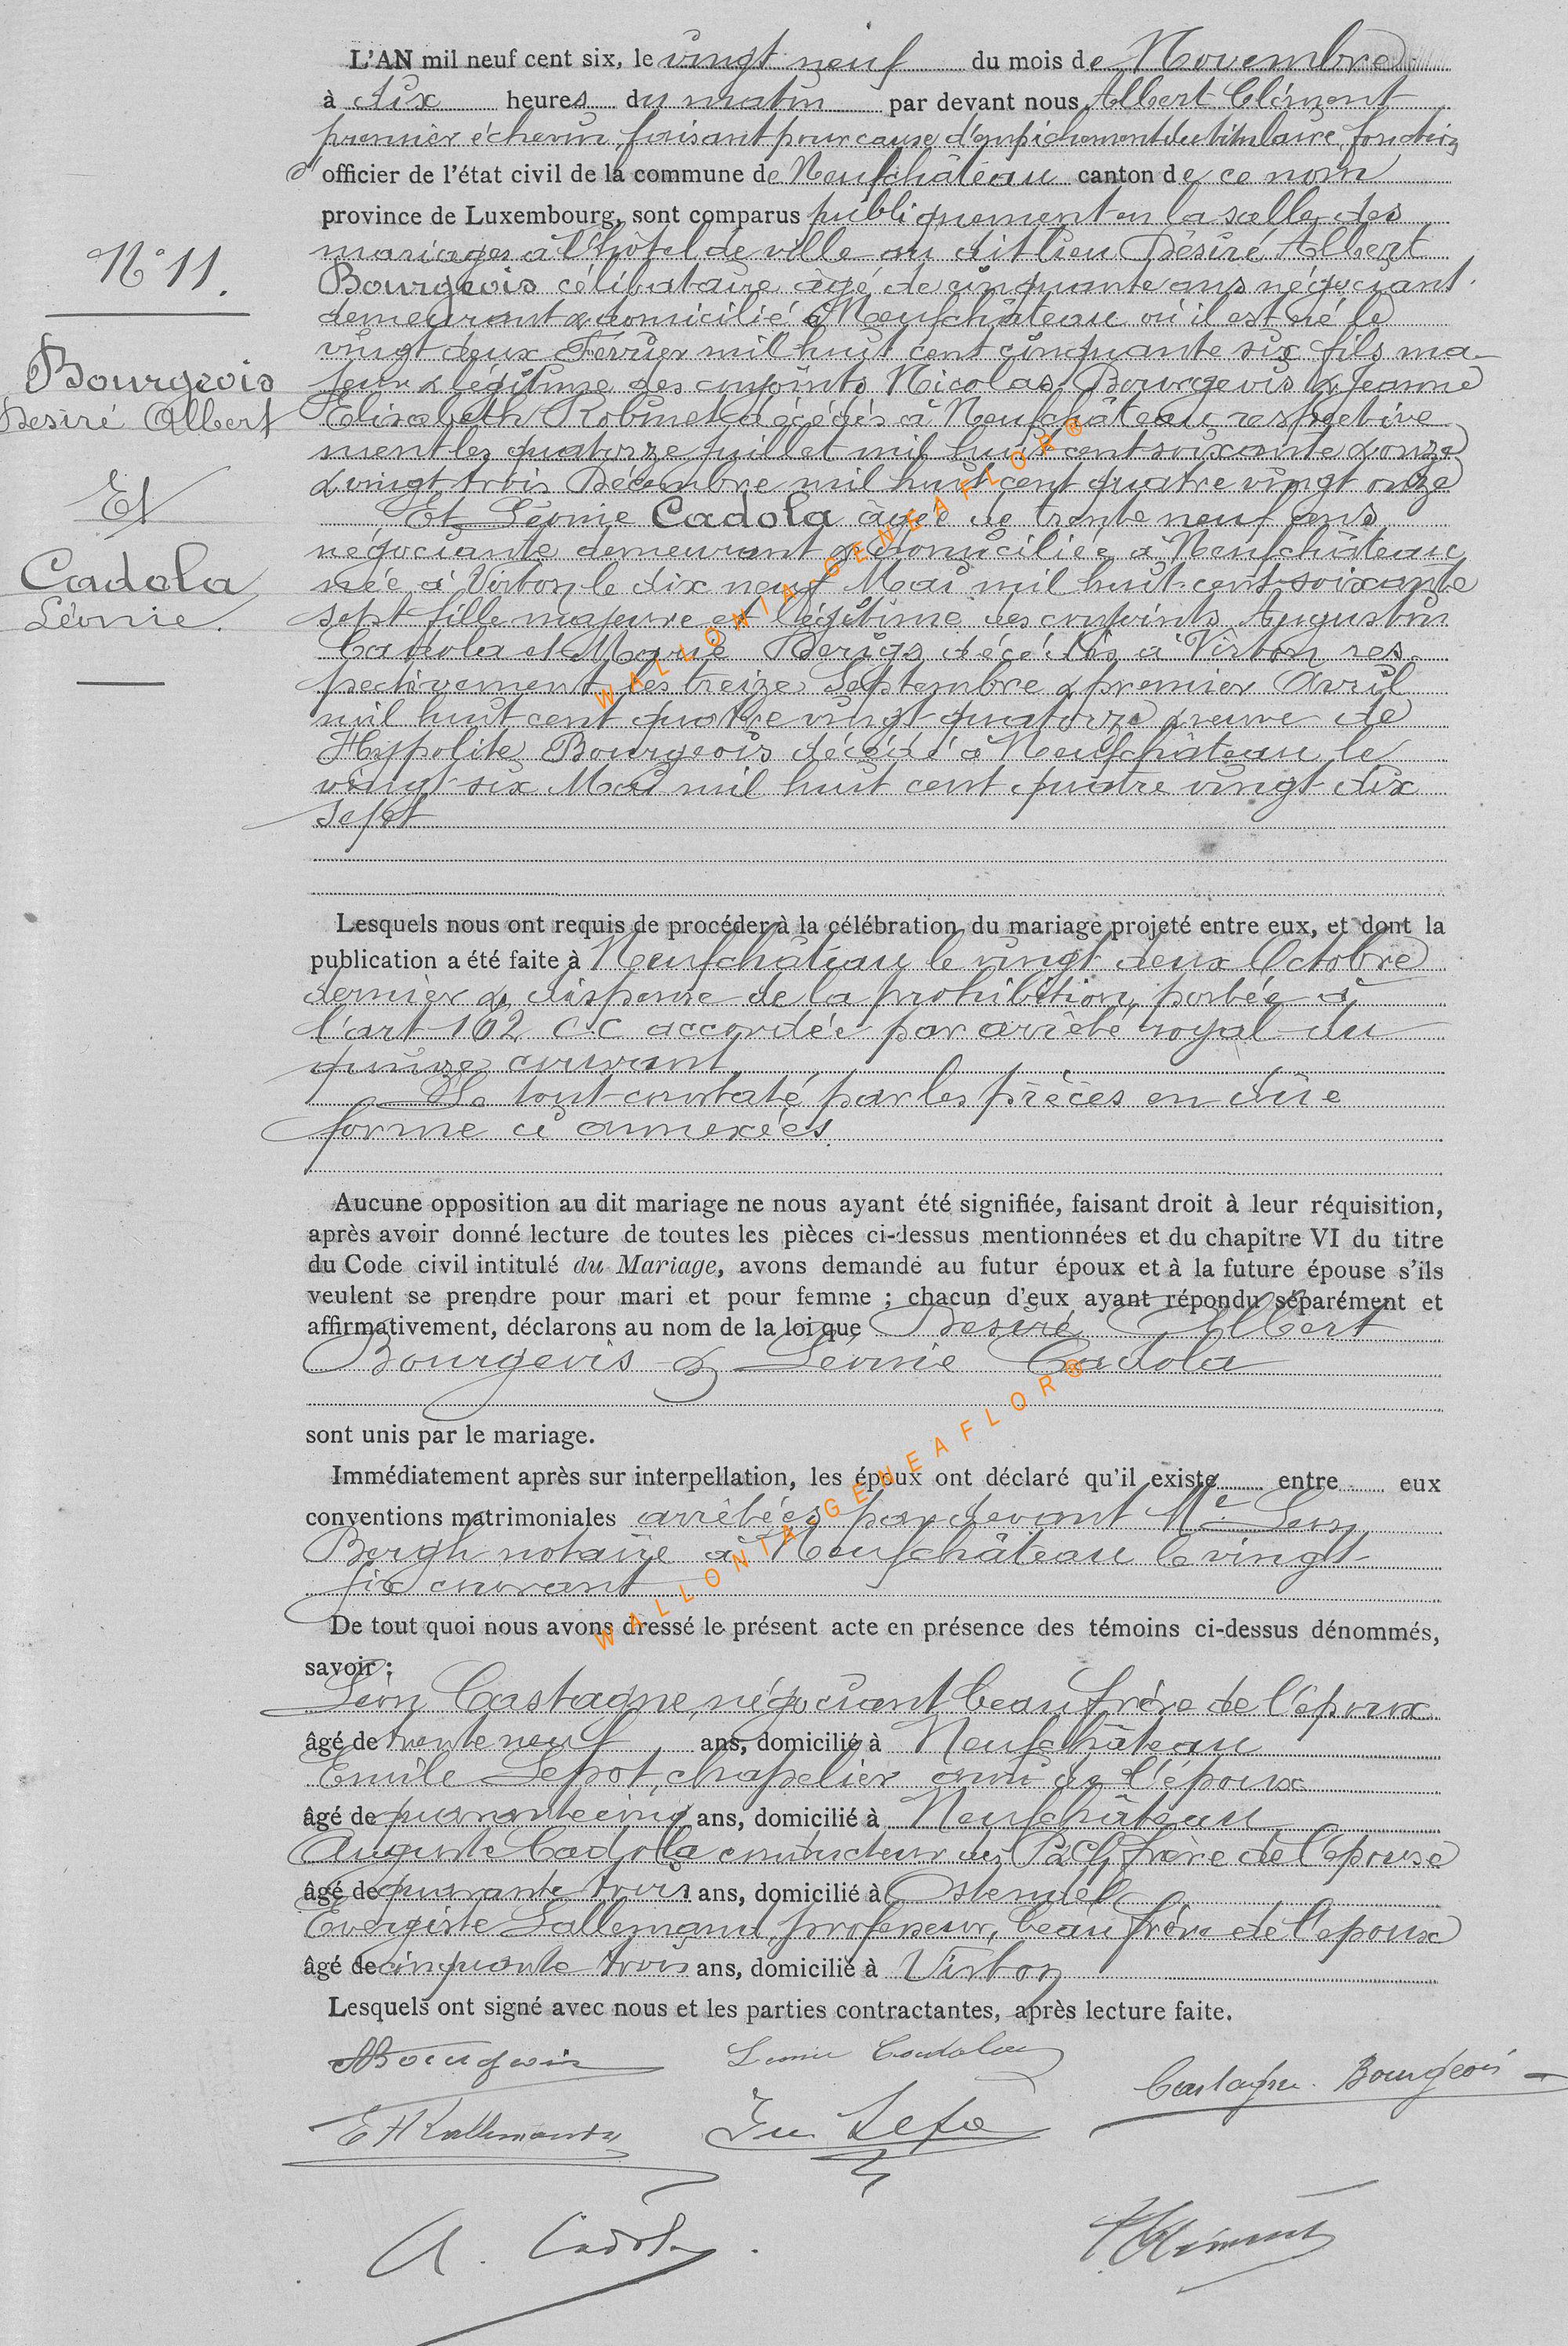 L'AN mil neuf cent six, le vingt neuf du mois de Novembre
à dix heures du matin par devant nous Albert Clément
premier échevin, faisant pour cause d'empêchement du titulaire, fonction
d' officier de l'état civil de la commune de Neufchâteau canton de ce nom
province de Luxembourg, sont comparus publiquement en la salle des
mariages à l'hôtel de ville au dit lieu Désiré Albert
Bourgeois célibataire âgé de cinquante ans négociant
demeurant & domicilié à Neufchâteau où il est né le
vingt deux Février mil huit cent cinquante six fils ma-
jeur & légitime des conjoints Nicolas Bourgeois & Jeanne
Elisabeth Robinet décédés à Neufchâteau respective
ment les quatorze juillet mil huit cent soixante & onze
& vingt trois Décembre mil huit cent quatre vingt onze
Et Léonie Cadola âgée de trente neuf ans
négociante demeurant & domiciliée à Neufchâteau
née à Virton le dix neuf Mai mil huit cent soixante
sept fille majeure et légitime des conjoints Augustin
Cadola et Marie décédés à Virton res
pectivement les treize Septembre & premier Avril
mil huit cent quatre vingt quatorze veuve de
Hyppolite Bourgeois décédé à Neufchâteau le
vingt six Mai mil huit cent quatre vingt dix
sept
N° 11.
Bourgeois
Desiré Albert
Et
Cadola
Léonie.
Lesquels nous ont requis de procéder à la célébration du mariage projeté entre eux, et dont la
publication a été faite à Neufchâteau le vingt deux Octobre
dernier & dispense de la prohibition portée à
l'art 162 C.C accordée par arrêté royal du
quinze courant
Le tout constaté par les pièces en due
forme ci annexées.
Aucune opposition au dit mariage ne nous ayant été signifiée, faisant droit à leur réquisition,
après avoir donné lecture de toutes les pièces ci-dessus mentionnées et du chapitre VI du titre
du Code civil intitulé du Mariage, avons demandé au futur époux et à la future épouse s'ils
veulent se prendre pour mari et pour femme ; chacun d'eux ayant répondu séparément et
affirmativement, déclarons au nom de la loi que Desiré Albert
Bourgeois & Léonie Cadola
sont unis par le mariage.
Immédiatement après sur interpellation, les époux ont déclaré qu'il existe entre eux
conventions matrimoniales arrêtées par devant Me Léon
Bergh notaire à Neufchâteau le vingt-
six courant
De tout quoi nous avons dressé le présent acte en présence des témoins ci-dessus dénommés,
savoir :
Léon Castagne, négociant beau frère de l'époux
âgé de trente neuf ans, domicilié à Neufchâteau
Emile Lepot, chapelier ami de l'époux
âgé de quarante cinq ans, domicilié à Neufchâteau
Auguste Cadola conducteur des frère de l'épouse
âgé de quarante trois ans, domicilié à Ostende
Evergiste Lallemand, professeur, beau frère de l'époux
âgé de cinquante trois ans, domicilié à Virton
Lesquels ont signé avec nous et les parties contractantes, après lecture faite.
Bourgeois Léonie Cadola
Castagne. Bourgeois
Lallemand
A. Cadola.
AClément
WALLONIA-GENEAFLOR®
WALLONIA-GENEAFLOR®